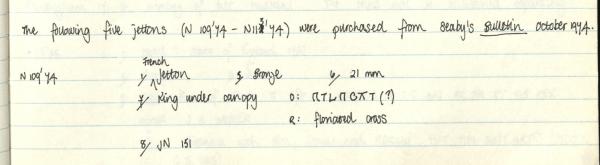 The following five jettons (N 109'74 - N113'74) were purchased from Seaby's Bulletin October 1974.
French
N 109'74 1/ ^ Jetton 3/ Bronze 6/ 21 mm
7/ King under canopy O: ΠTLΠCXT (?)
R: floriated cross
8/ JN 151